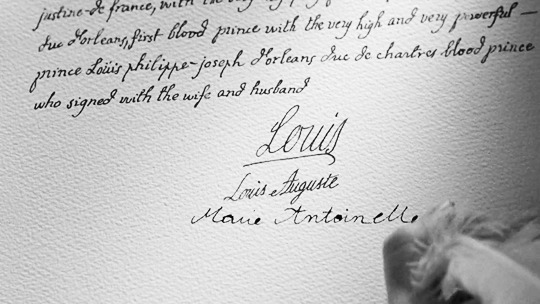 justine-de france, with the very
duc d'orleans, first blood prince with the very high and very powerful —
prince Loüis philippe-joseph d'orleans duc de chartres blood prince
who signed with the wife and husband
Louis
Louis Auguste
Marie Antoinelle